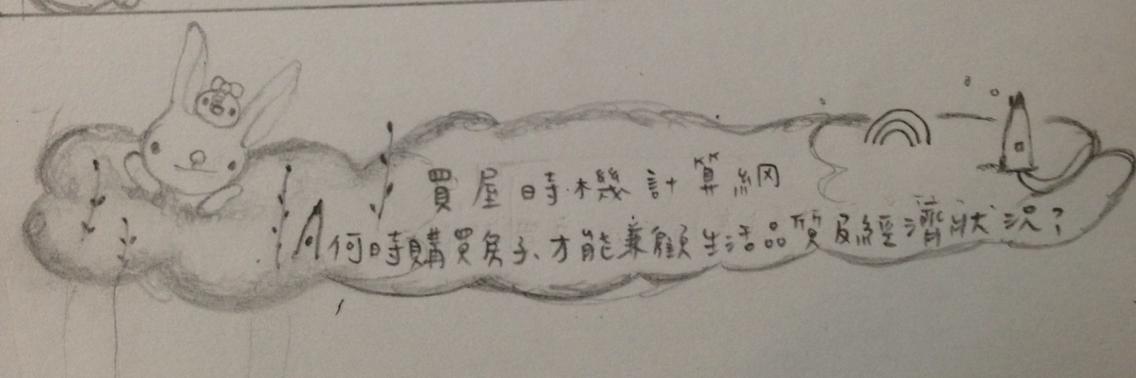 買屋時機計算網
何時購買房子、才能兼顧生活品質及經濟狀況?